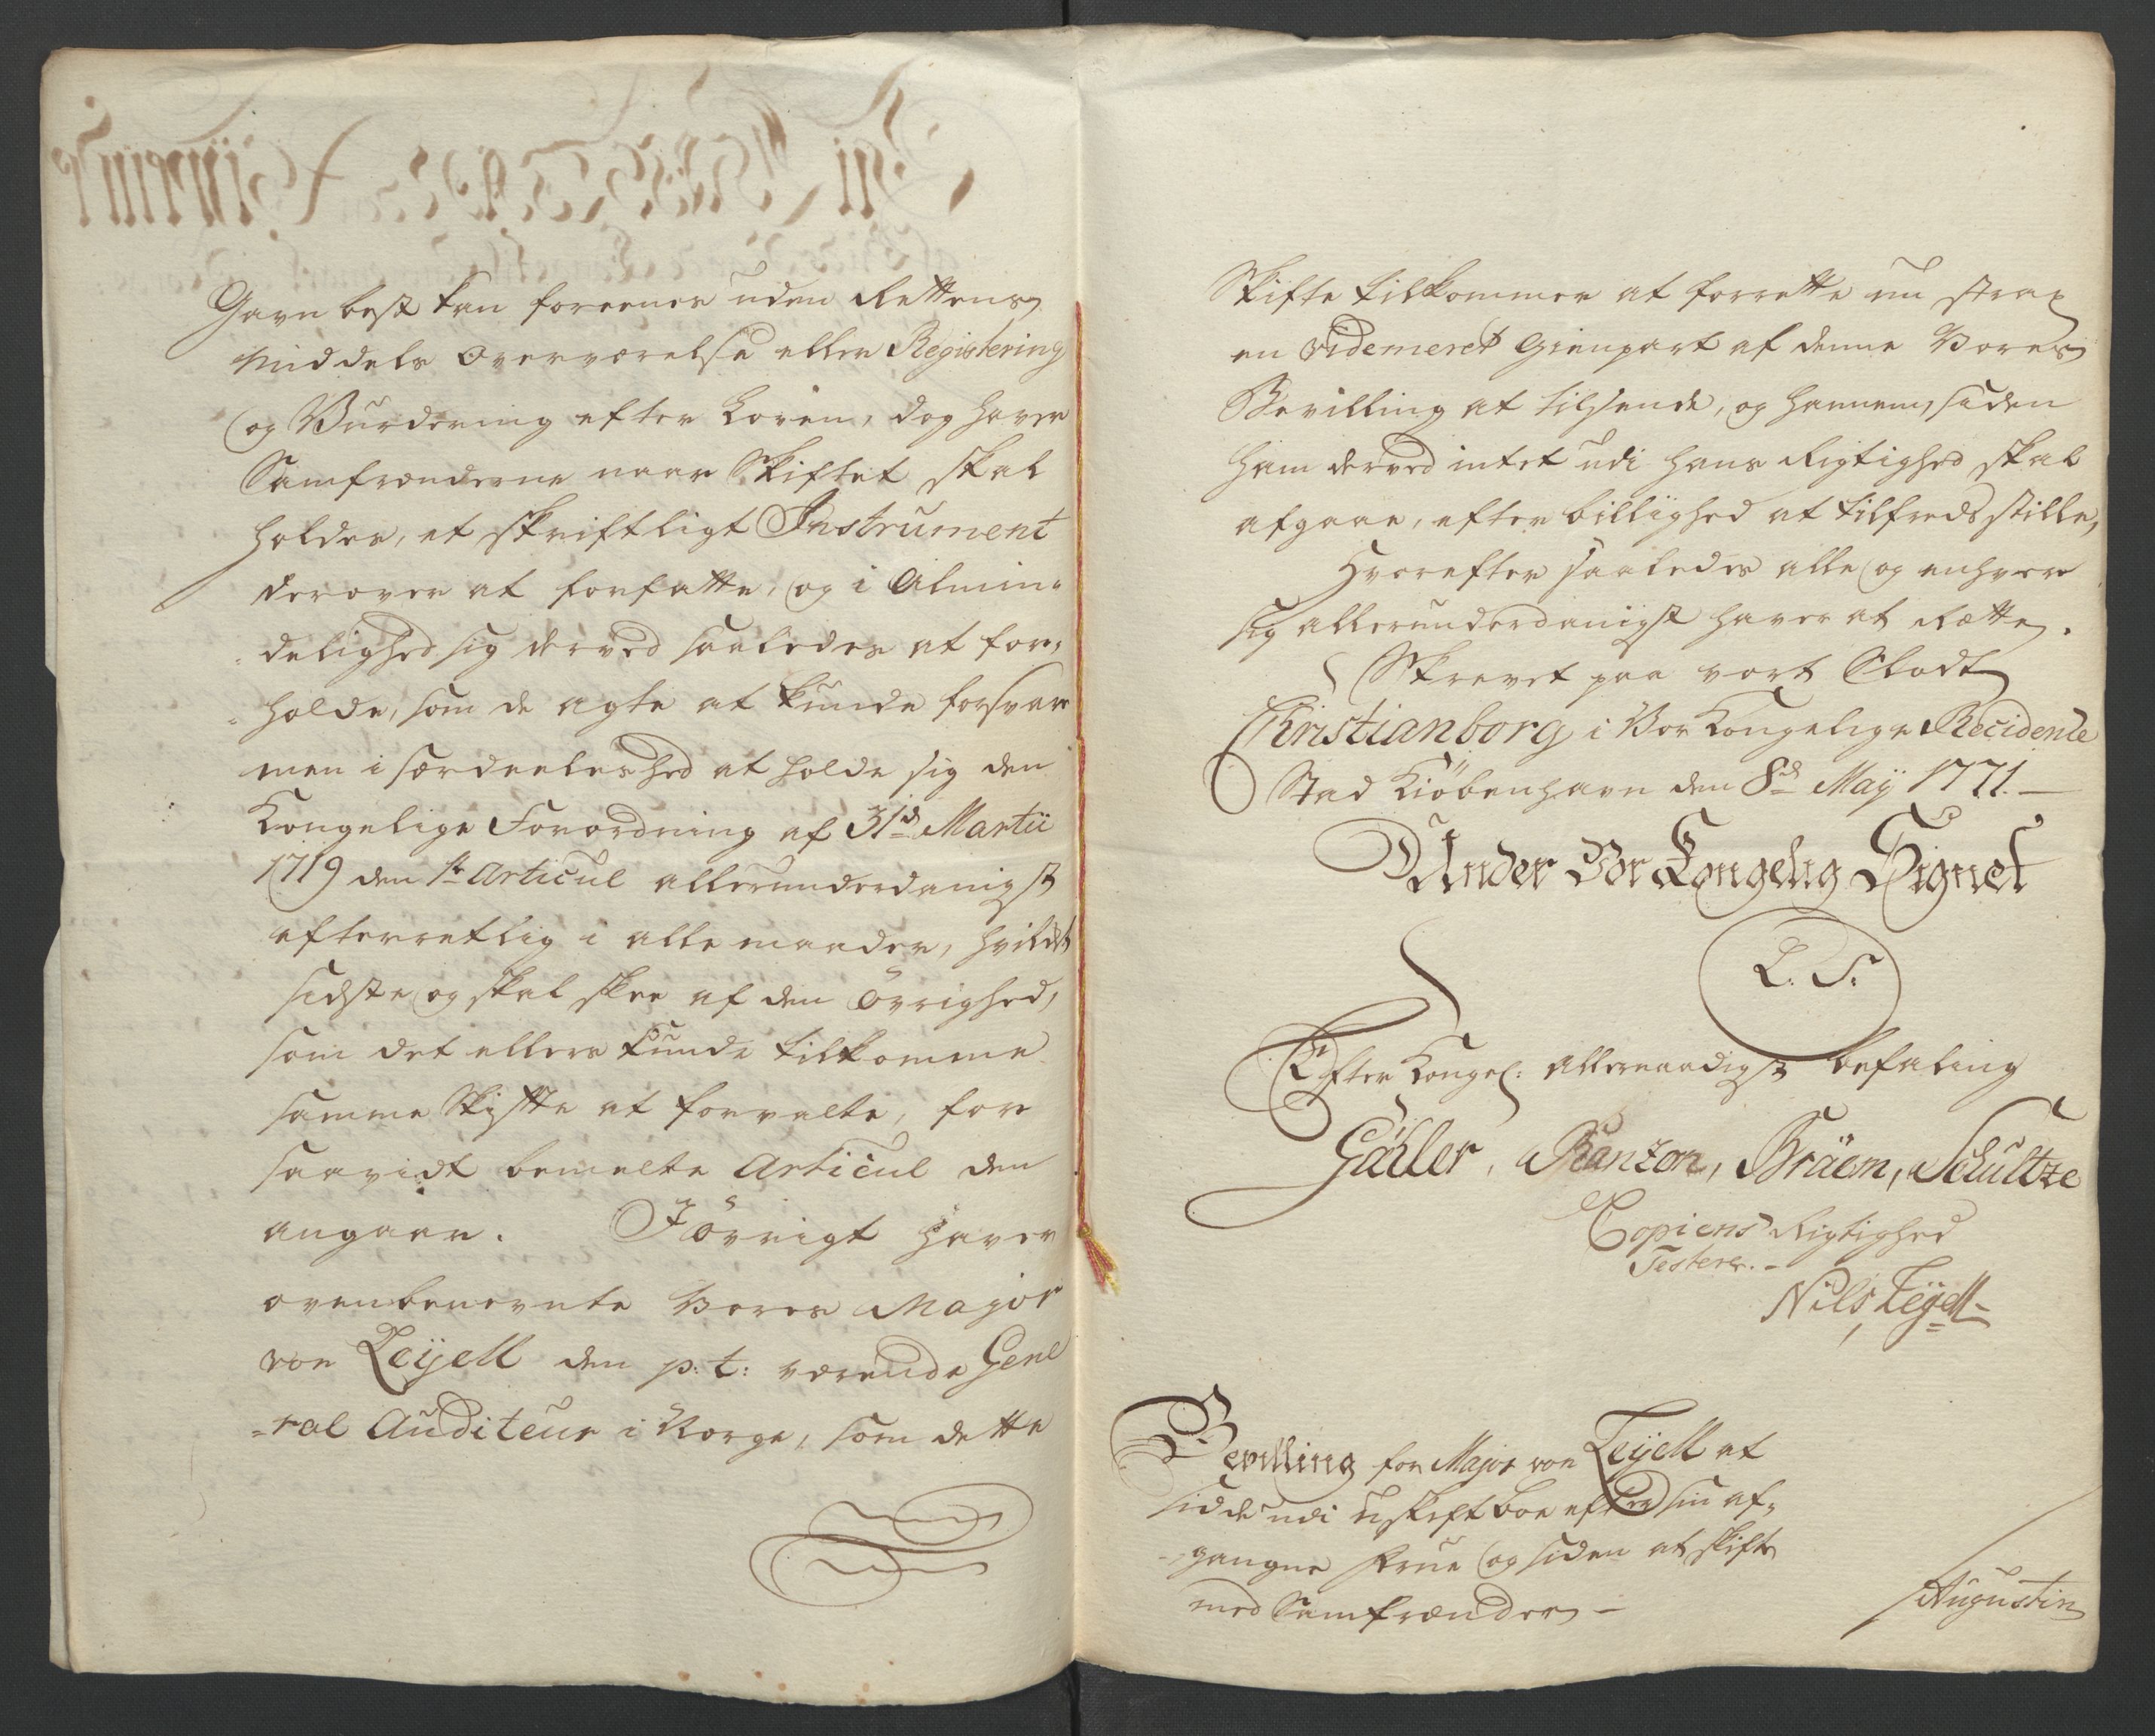 Gavn best kan foreenes uden Rettens
Middels Overværelse eller Registering
og Vurdering efter Loven, dog haver
Samfrænderne naar Skiftet skal
holdes, et skriftligt Instrument
derover at forfatte, og i Almin-
delighed sig derved saaledes at for-
holde, som de agte at kunde forsvare
men i særdeeleshed at holde sig den
Kongelige Forordning af 31d Martii
1719 den 1te Articul allerunderdanigst
efterretlig i alle maader, hvilket
sidste og skal skee af den Øvrighed,
som det ellers kunde tilkomme
samme Skiffte at forvalte, for
saavidt bemelte Articul den
angaar. I øvrigt haver
ovenbenevnte Vores Major
von Leÿell den p: t: værende Gene
-ral Auditeur i Norge, som dette
Skifte tilkommer at forrette nu strax
en videmeret Gienpart af denne Vores
Bevilling at tilsende, og hannem, siden
ham derved intet udi hans Rigtighed skal
afgaae, efter billighed at tilfredsstille,
Hvorefter saaledes alle og enhver
sig allerunderdanigst haver at Rætte.
Skrevet paa vort Slodt
Christianborg i Vor Kongelige Recidence
Stad Kiöbenhavn den 8d Maÿ 1771. —
Under Vor Kongelig Signet
L. S.
Efter Kongel: Allernaadigst befaling
Gähler, Ranzon, Bräem, Schultze
Copiens Rigtighed
Testerer. -
Nils Leÿell -
Bevilling for Major von Leÿell at
sidde udi uskift boe efter sin af-
-gangne Frue og siden at skifte
med Samfrænder —
Augustin